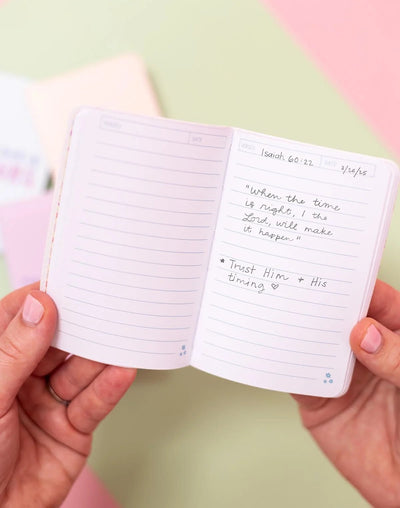 VERSE:
DATE:
VERSE:
Isaiah 60:22
DATE:
2/26/25
"When the time
is right, I the
Lord, will make
it happen."
★ Trust Him + His
timing ♡